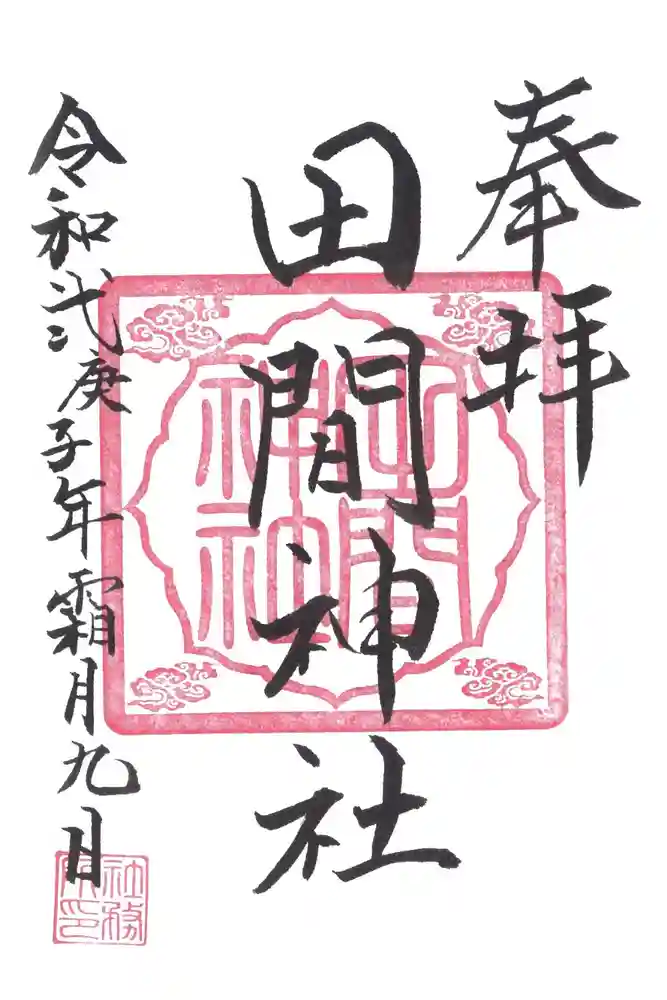 奉拝
田間神社
令和弐庚子年霜月九日
田間神社
社務所印